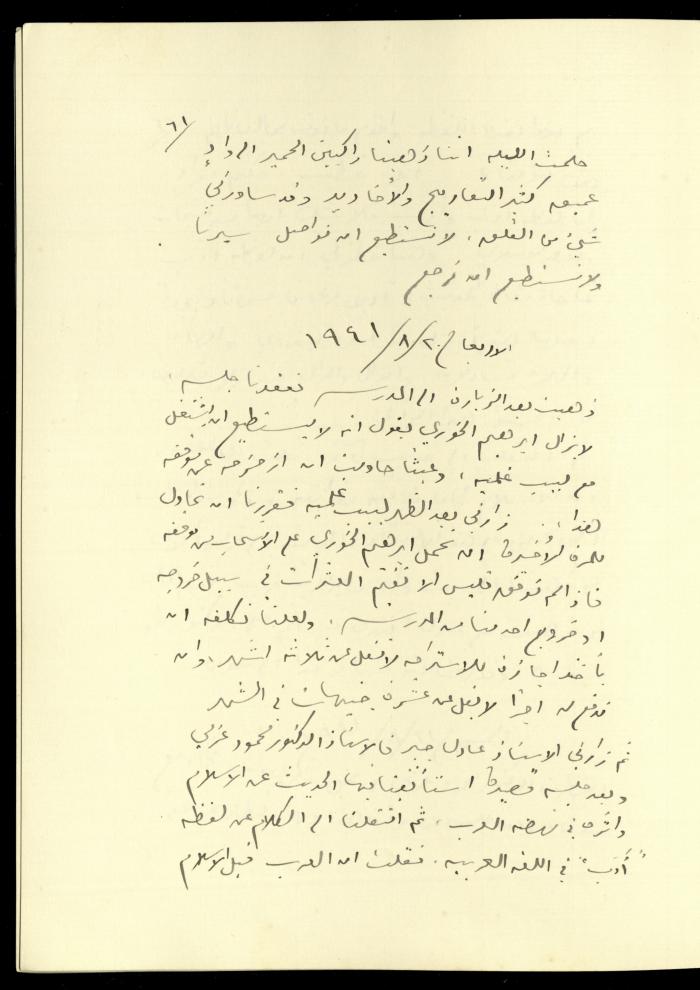 ٦١/
حلمت الليلة اننا ذهبنا راكبين الحمير الى وادٍ
عميق كثير التعاريج والأخاديد وقد ساورني
شيء من القلق، لا نستطيع ان نواصل سيرنا
ولا نستطيع ان نرجع
الاربعاء ٢٠/٨/١٩٤١
ذهبت بعد الزيارة الى المدرسه فعقدنا جلسه،
لا يزال ابرهيم الخوري يقول انه لا يستطيع ان يشتغل
مع لبيب غلميه، وعبثاً حاولت ان ازحزحه عن موقفه
هذا. زارني بعد الظهر لبيب غلميه فقررنا ان نحاول
للمرة الأخيرة ان نحمل ابرهيم الخوري على الانسحاب من موقفه
فاذا لم نوفق فليس الا في سبيل خروجه
او خروج احد منا من المدرسه، ولعلنا نكلفه ان
يأخذ اجازة للاستراحه لا تقل عن ثلاثة اشهر، وان
ندفع له اجراً لا يقل عن عشرة جنيهات في الشهر
ثم زارني الاستاذ عادل جبر فالاستاذ الدكتور محمود عزمي
وبعد جلسه قصيرة استأنفنا فيها الحديث عن الاسلام
واثره في نهضه العرب، ثم انتقلنا الى الكلام عن لفظه
"أدب" في اللغه العربيه، فقلت ان العرب قبل الاسلام